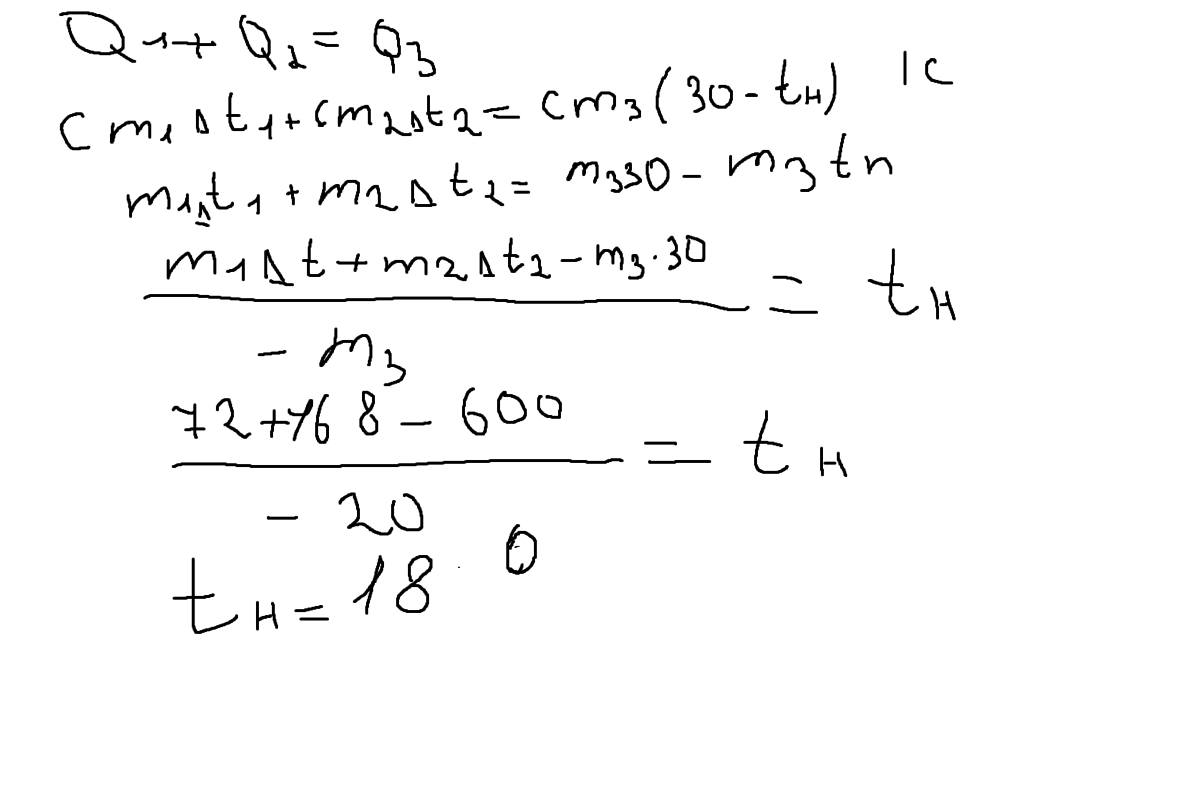 Q1 + Q2 = Q3
cm1Δt1 + cm2Δt2 = cm3(30 - tн) | c
m1Δt1 + m2Δt2 = m330 - m3tn
m1Δt + m2Δt2 - m3·30 = tн
- m3
72 + 168 - 600 = tн
- 20
tн = 18 0